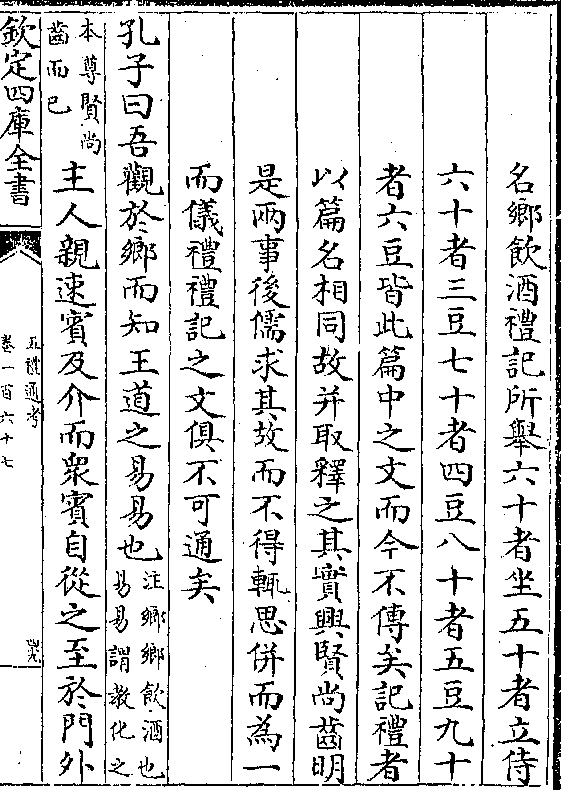 名鄉飲酒禮記所舉六十者坐五十者立侍
六十者三豆七十者四豆八十者五豆九十
者六豆皆此篇中之文而今不傳矣記禮者
以篇名相同故并取釋之其實興賢尚齒明
是兩事後儒求其故而不得輒思併而為一
而儀禮禮記之文俱不可通矣
孔子曰吾觀於鄉而知王道之易易也注鄉鄉飲酒也
易易謂教化之
本尊賢尚
齒而已
主人親速賓及介而衆賓自從之至於門外
欽定四庫全書
五禮通考
卷一百六十七